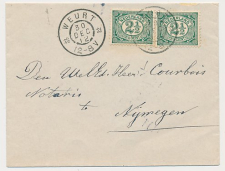 WEURT
30 DEC
12-8V
2½ 2½
Den WelEd. Heer Courbois
Notaris
te
Nijmegen